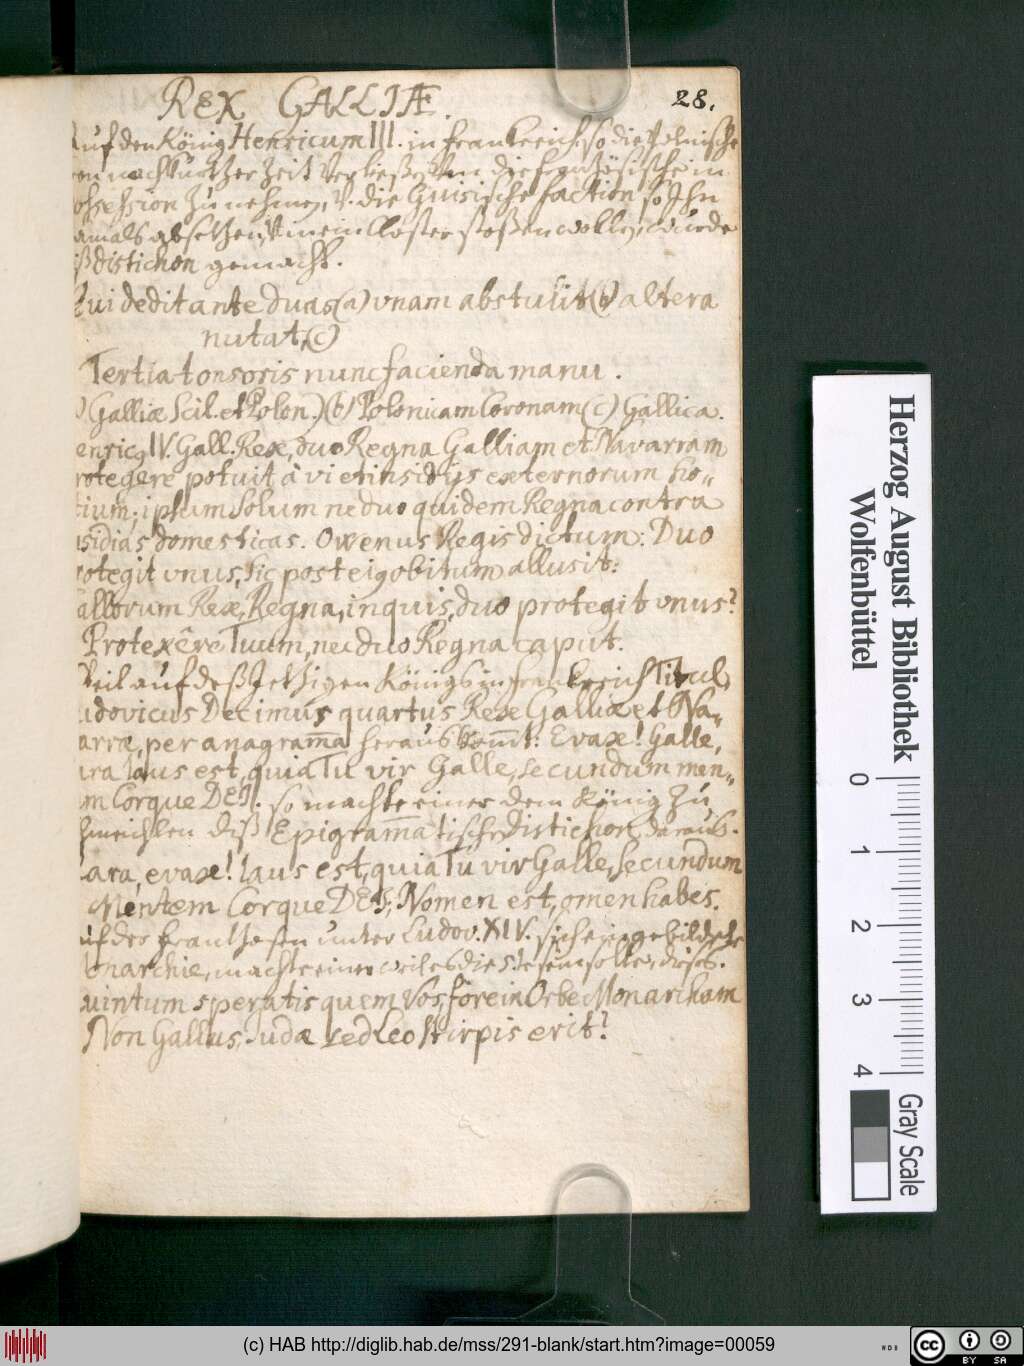 REX GALLIÆ.
28.
auf den König Henricum III. in Franckreich, so die Polnische
von nach kurtzer Zeit verließ, Vm die frantzösische in
ossession zu nehmen, V. die Guisische faction so Ihn
amals absetzen, V. in ein Closter stoßen wollen, wurde
iß distichon gemacht.
Qui dedit ante duas (a) vnam abstulit (b) altera
nutat, (c)
Tertia tonsoris nunc facienda manu.
) Galliæ Scil. et Polon.) (b) Polonicam Coronam (c) Gallica.
enricq IV. Gall. Rex, duo Regna Galliam et Navarram
rotegere potuit à vi et insidijs externorum ho„
tium; ipsum solum ne duo quidem Regna contra
nsidias domesticas. Owenus Regis dictum: Duo
rotegit vnus, sic post eiq obitum allusit:
allorum Rex, Regna, inquis, duo protegit vnus?
Protexêre Tuum, nec duo Regna caput.
Weil auf deß Jetzigen Königs in Franckreich Titul,
udovicus Decimus quartus Rex Galliæ et Na„
arræ, per anagram̄a heraus kom̄t: Evax! Galle,
ara laus est, quia Tu vir Galle, secundum men„
m Corque DEI. so machte einer dem König zu
hmeichlen diß Epigram̄atische distichon daraus.
ara, evax! laus est, quia Tu vir Galle, secundum
Mentem Corque DEI; Nomen est, omen habes.
uf der Frantzosen unter Ludov. XIV. sich eingebildete
onarchie, machte einer
uintum speratis quem Vos fore in Orbe Monarcham
Non Gallus, Iudæ sed Leo stirpis erit?
Herzog August Bibliothek
Wolfenbüttel
0 1 2 3 4
Gray Scale
(c) HAB http://diglib.hab.de/mss/291-blank/start.htm?image=00059
WDB
cc BY SA